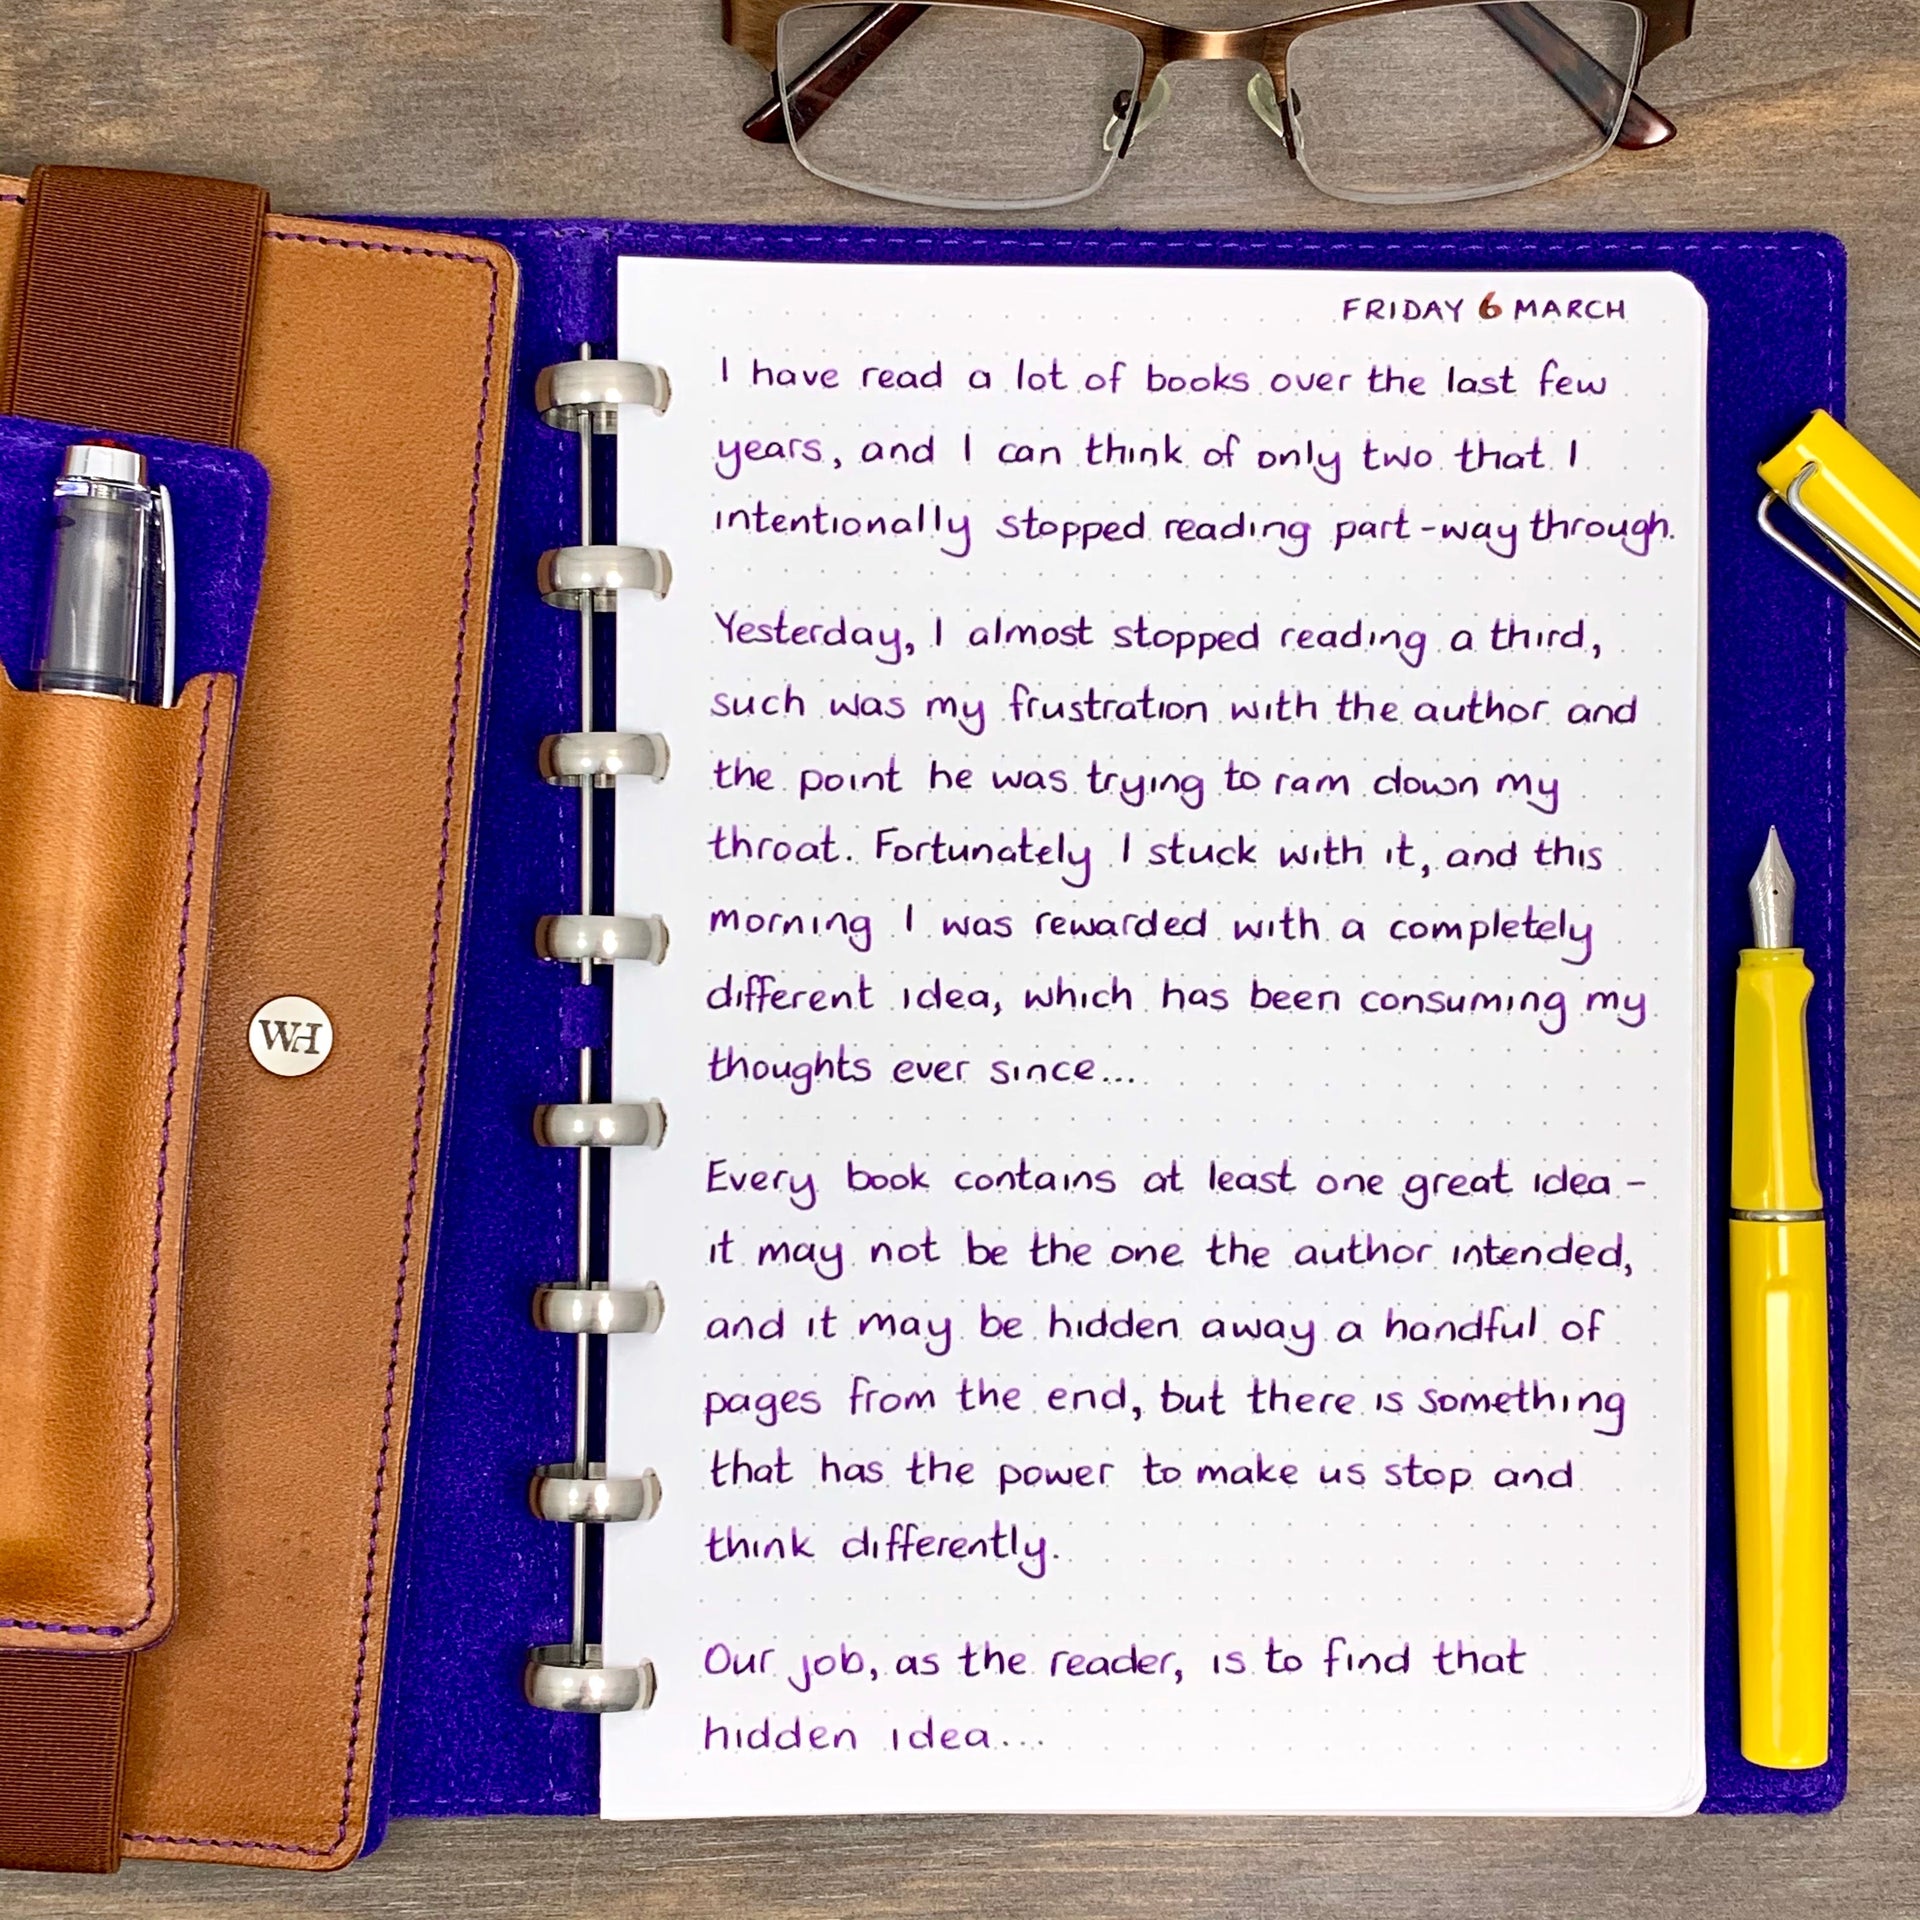 FRIDAY 6 MARCH
I have read a lot of books over the last few
years, and I can think of only two that I
intentionally stopped reading part-way through.
Yesterday, I almost stopped reading a third,
such was my frustration with the author and
the point he was trying to ram down my
throat. Fortunately I stuck with it, and this
morning I was rewarded with a completely
different idea, which has been consuming my
thoughts ever since...
Every book contains at least one great idea -
it may not be the one the author intended,
and it may be hidden away a handful of
pages from the end, but there is something
that has the power to make us stop and
think differently.
Our job, as the reader, is to find that
hidden idea...
WH